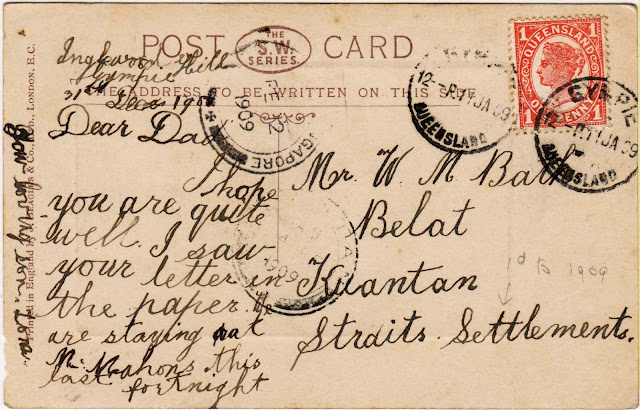 POST CARD
THE
S.W.
SERIES.
THE ADDRESS TO BE WRITTEN ON THIS SIDE
Gympie
31st Dec 190
Dear Dad
I hope
you are quite
well. I saw
your letter in
the paper.
are staying at
Mahons this
last fortnight
your loving son.
Mr. W M Bath
Belat
Kuantan
Straits Settlements.
1d to 1909
QUEENSLAND
1 ONE PENNY 1
12-P 11 JA 09
QUEENSLAND
GYMPIE
12-P 11 JA 09
QUEENSLAND
SINGAPORE
FE 2
1909
1909
Printed in England by LONDON, E.C.